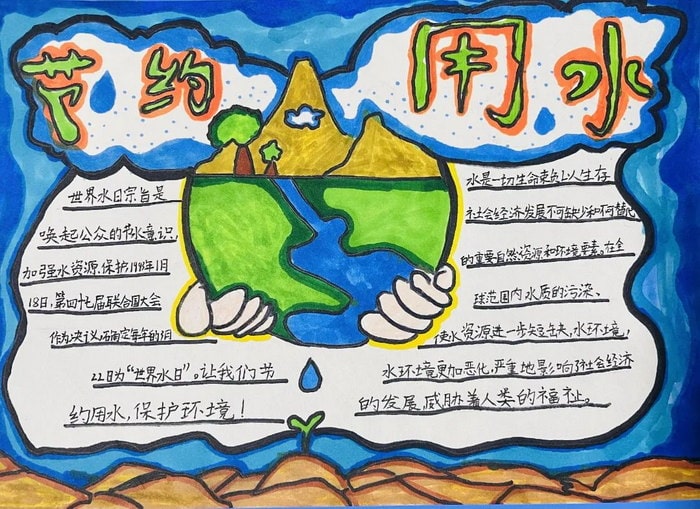 节约用水
世界水日宗旨是
唤起公众的节水意识,
加强水资源保护1993年1月
18日,第四十七届联合国大会
作为决议,确定每年的3月
22日为“世界水日”。让我们节
约用水,保护环境!
水是一切生命赖以生存
社会经济发展不可缺少和不可替代
的重要自然资源和环境要素。在全
球范围内水质的污染、
使水资源进一步短缺,水环境,
水环境更加恶化,严重地影响了社会经济
的发展,威胁着人类的福祉。